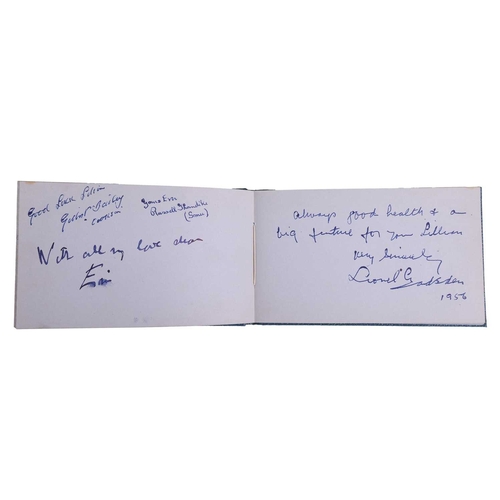 Good Luck Lilian
Yours Ever
Russell Thorndike
(Smee)
With all my love dear
always good health & a
big future for you Lillian
Very Sincerely
Lionel Gadsden
1956